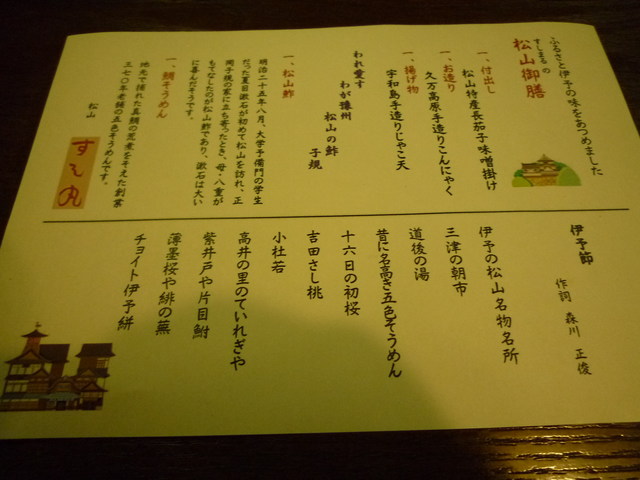 ふるさと伊予の味をあつめました
すし丸の
松山御膳
一、付出し
松山特産長茄子味噌掛け
一、お造り
久万高原手造りこんにゃく
一、揚げ物
宇和島手造りじゃこ天
われ愛す
わが豫州
松山の鮓
子規
一、松山鮓
明治二十五年八月、大学予備門の学生
だった夏目漱石が初めて松山を訪れ、正
岡子規の家に立ち寄ったとき、母・八重が
もてなしたのが松山鮓であり、漱石は大い
に喜んだそうです。
一、鯛そうめん
地元で捕れた真鯛の煮煮をそえた創業
三七〇年老舗の五色そうめんです。
松山
すし丸
伊予節
作詞 森川 正俊
伊予の松山名物名所
三津の朝市
道後の湯
昔に名高き五色そうめん
十六日の初桜
吉田さし桃
小杜若
高井の里のていれぎや
紫井戸や片目鮒
薄墨桜や緋の蕪
チョイト伊予絣